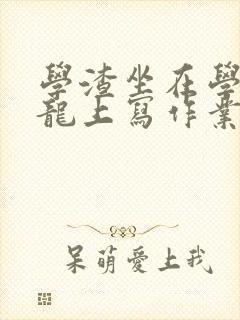 學渣坐在學
龍上寫作業
呆萌愛上我